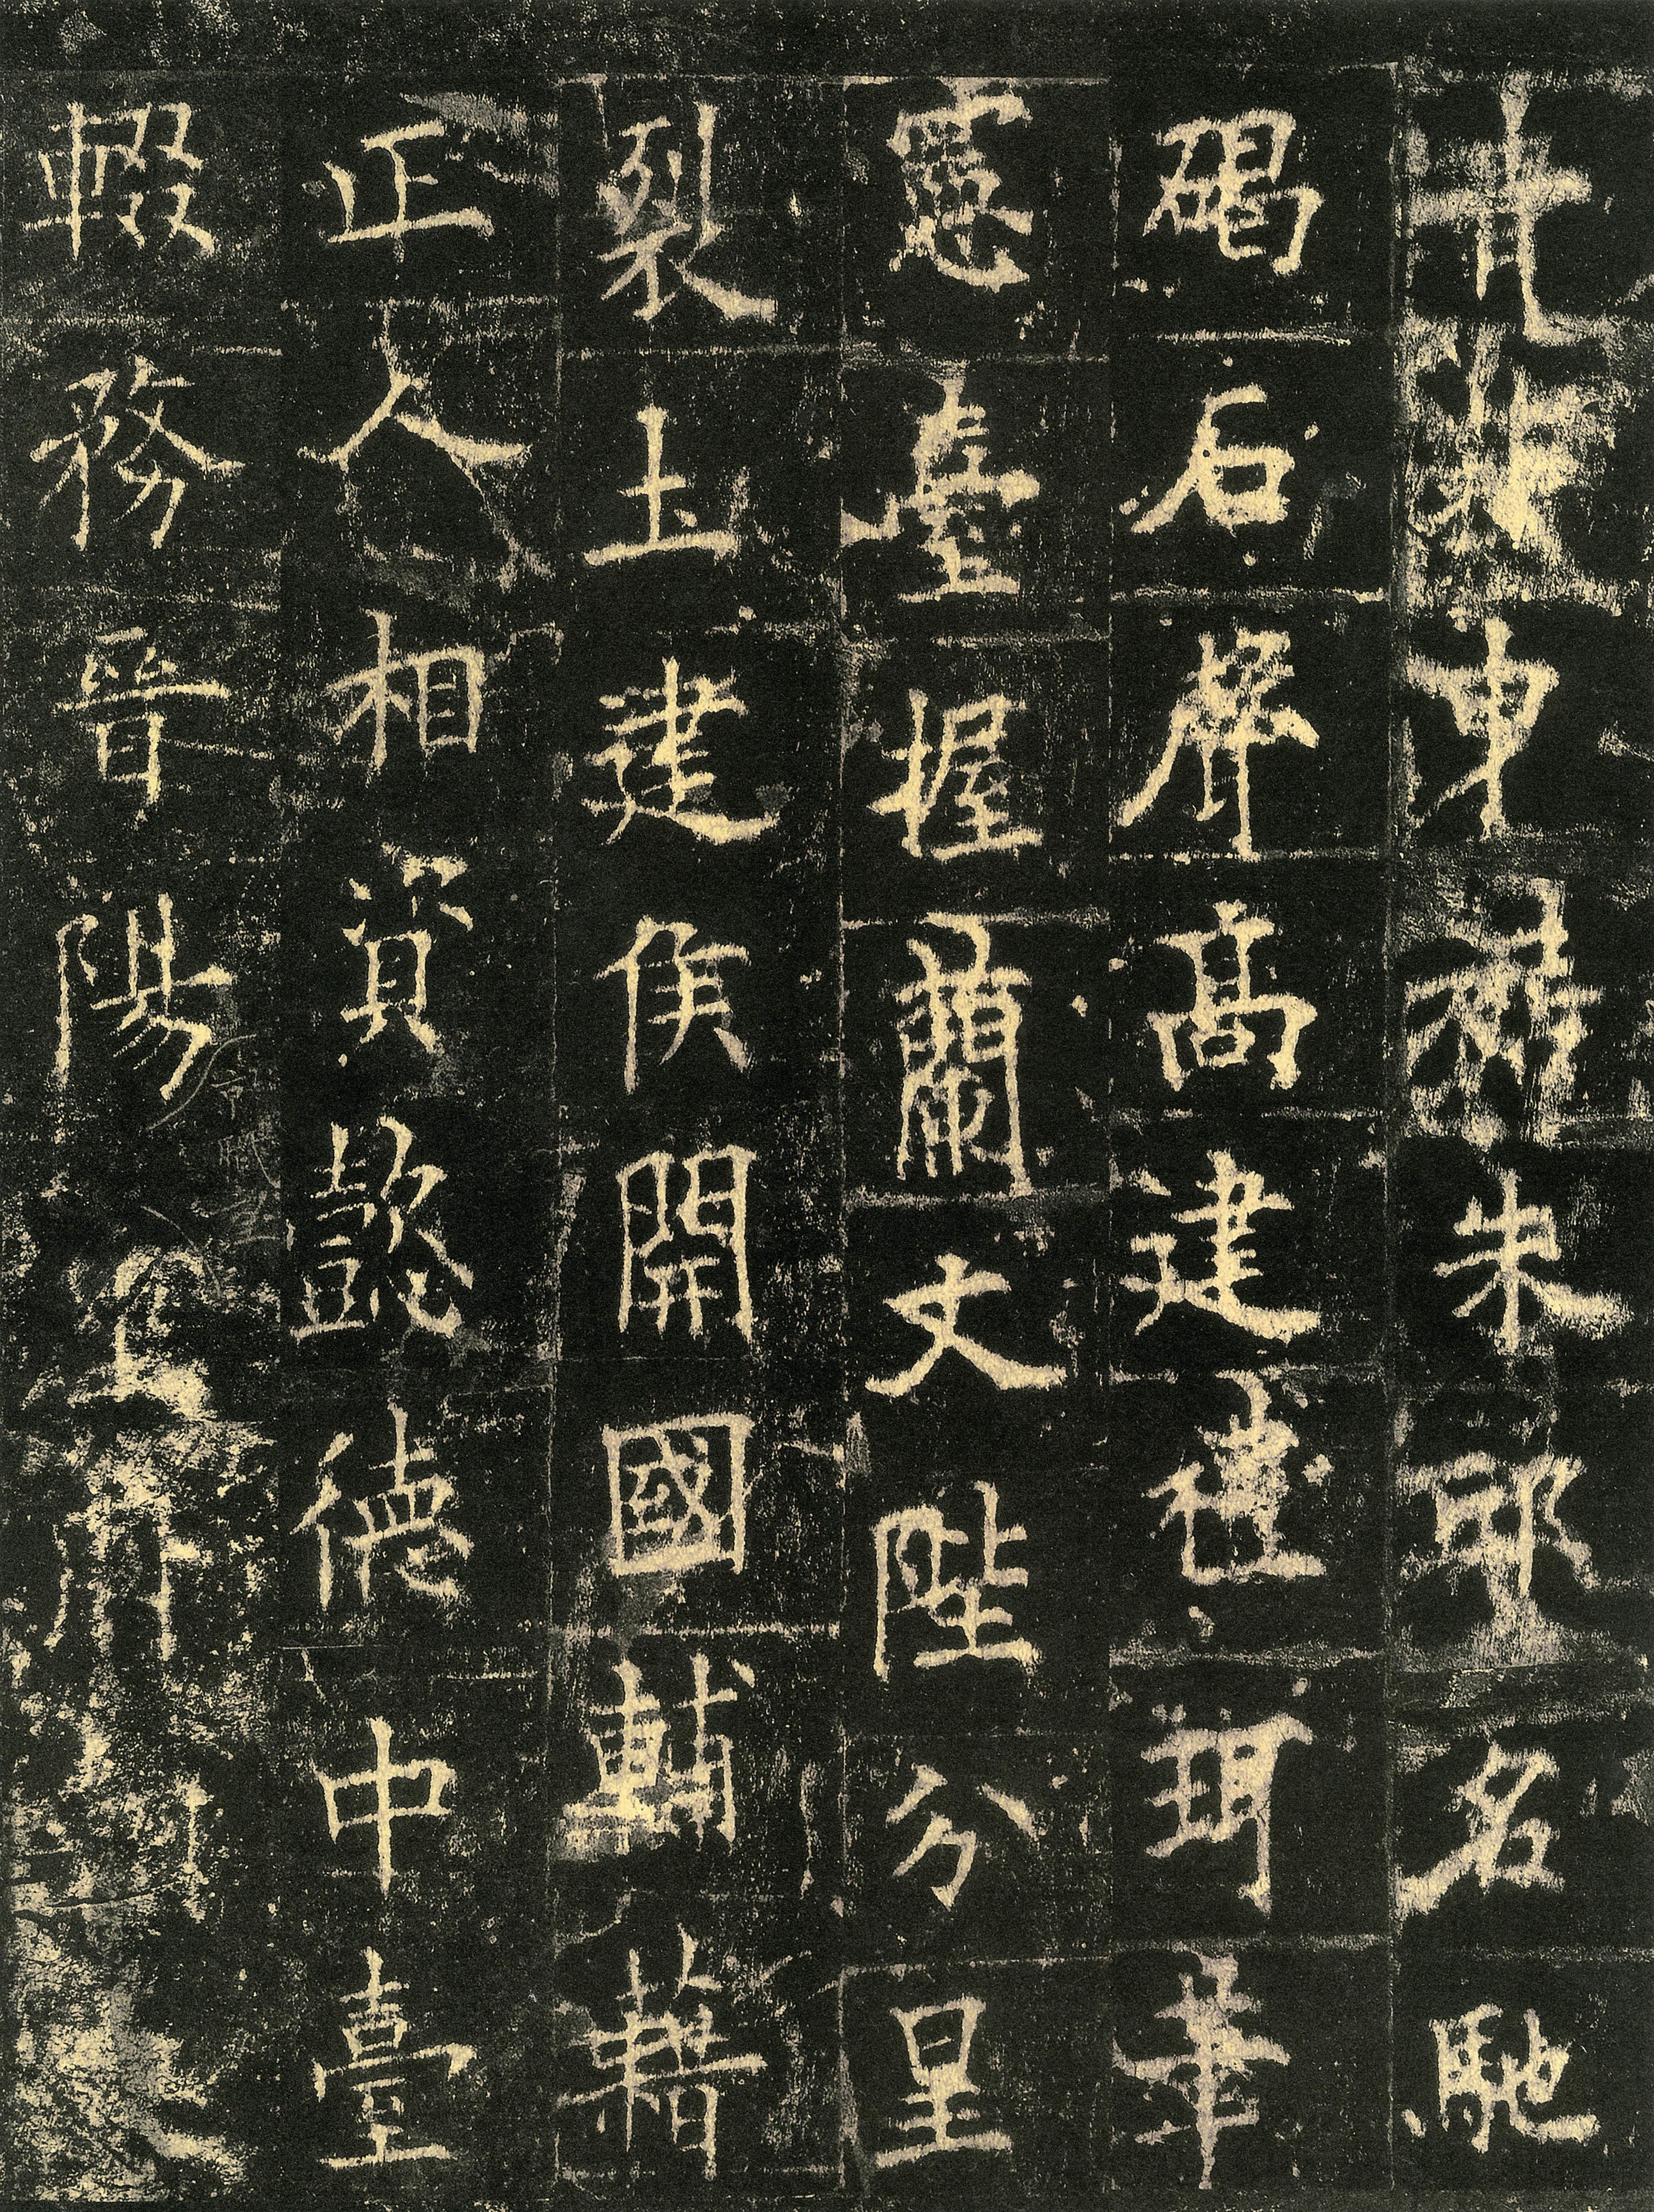 申朱邸名馳
碣石聲高建禮珥筆
靈臺握蘭文陛分星
裂土建侯開國輔藉
正人相資懿德中臺
輟務晉陽